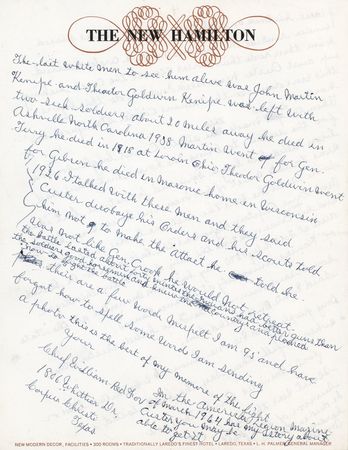 THE NEW HAMILTON
The last white men to see him alive was John Martin
Kenipe and Theodor Goldwin Kenipe was left with
two sick soldiers about 20 miles away he died in
Ashville North Carolina 1938 Martin went for Gen.
Terry he died in 1918 at Lorain Ohio Theodor Goldwin went
for Gibren he died in Masonic home in Wisconsin
1926 I talked with these men and they said
Custer disobaye his Orders and his scouts told
him not to make the Attact he told he
was not like Gen Crook he would not retreat.
the battle lasted about forty minites the indians had better guns than
the soldiers good horsemen and knew the country and
how to fight the battle
their are a few words Mispelt I am 93 and have
forgot how to spell some words I am sending
a photo this is the best of my memorie of the fight
Your
Chief William Red Fox
1806 Whittier Dr,
Corpus Christi
Texas
In the American Legion Magazine
of March 1964 has my story about
Custer you may be
able to get it
NEW MODERN DECOR, FACILITIES • 300 ROOMS • TRADITIONALLY LAREDO'S FINEST HOTEL • LAREDO, TEXAS • L. H. PALMER, GENERAL MANAGER